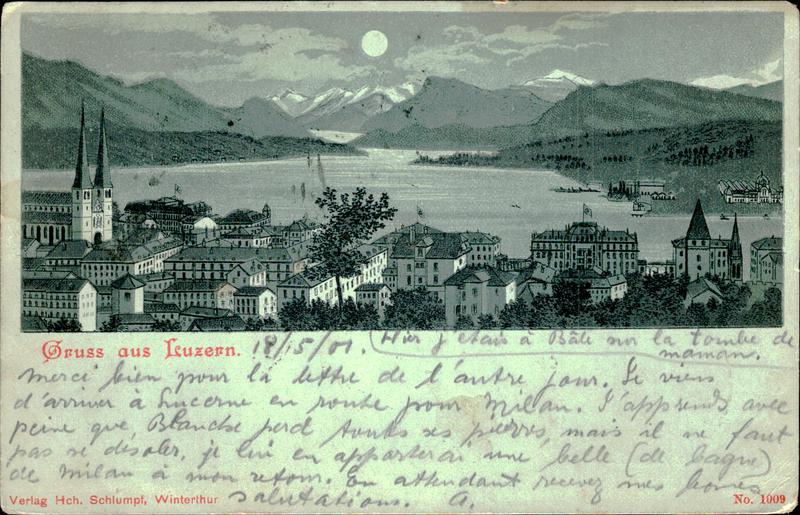 Gruss aus Luzern. 18/5/01. Hier j'étais à Bâle sur la tombe de
maman.
Merci bien pour la lettre de l'autre jour. Je viens
d'arriver à Lucerne en route pour Milan. J'apprends avec
peine que Blanche perd toutes ses pierres, mais il ne faut
pas se désoler, je lui en apporterai une belle (de bague)
de Milan à mon retour. En attendant recevez mes bonnes
salutations. A.
Verlag Hch. Schlumpf, Winterthur
No. 1009